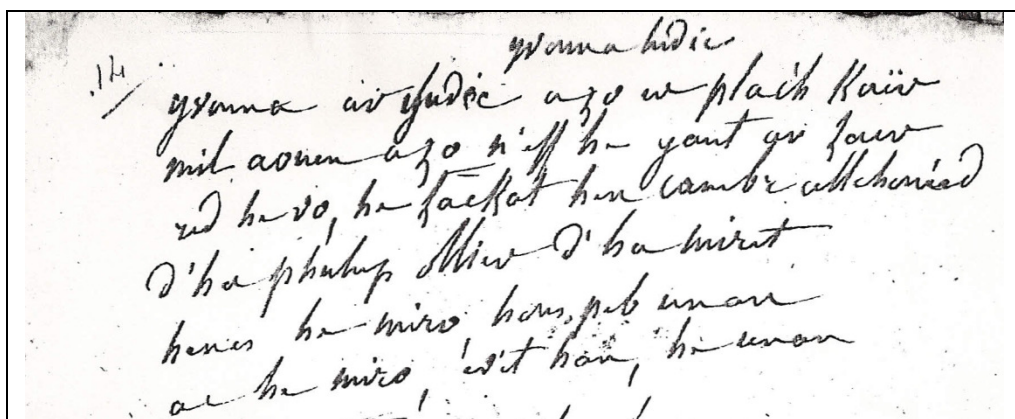 yvonna hudic
14/
yvonna ar yudéc a zo ur plac'h Kaër
mil aouen a zo n'eff he gant ar Laer
red he vo, he Lackat hen cambr allchouéad
d'ha phulup ollier d'ha miret
henes he miro, hous, peb unan
ac he miro, evit han, he unan